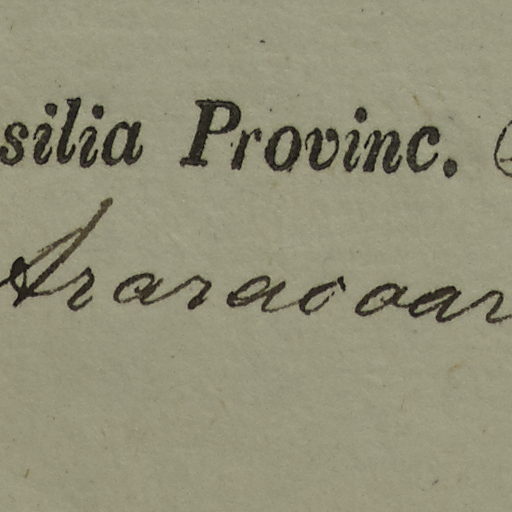 silia Provinc.
Araracoar